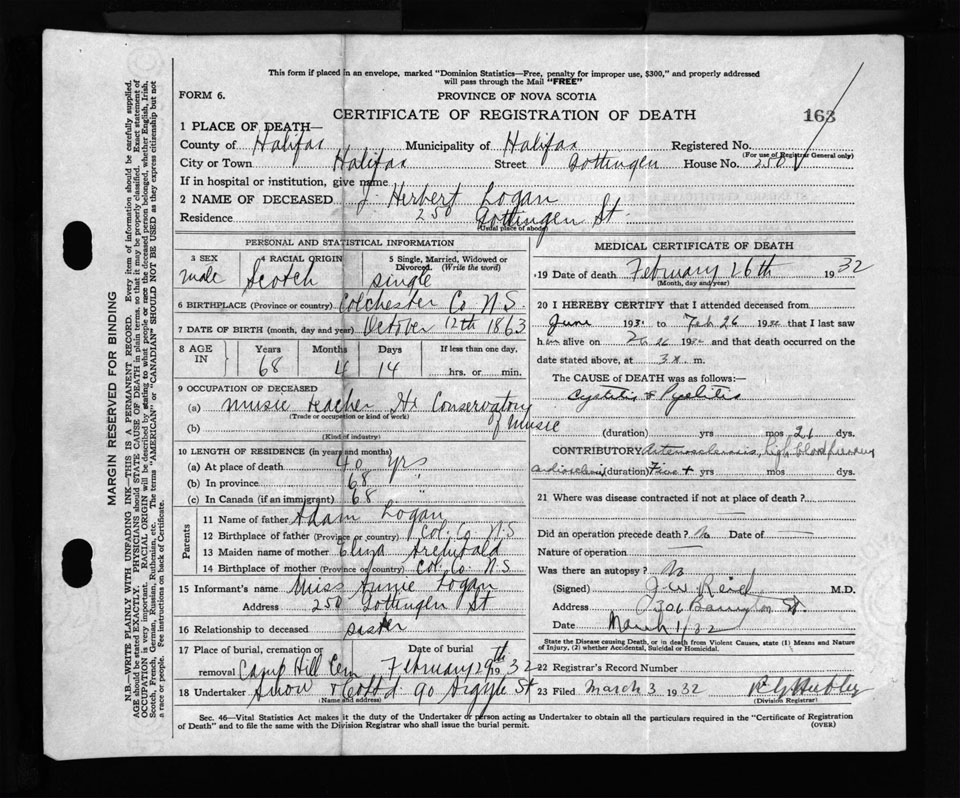 This form if placed in an envelope, marked "Dominion Statistics—Free, penalty for improper use, $300," and properly addressed
will pass through the Mail "FREE"
FORM 6.
PROVINCE OF NOVA SCOTIA
CERTIFICATE OF REGISTRATION OF DEATH
163
1 PLACE OF DEATH—
County of Halifax Municipality of Halifax Registered No.
(For use of Registrar General only)
City or Town Halifax Street Gottingen House No. 250
If in hospital or institution, give name
2 NAME OF DECEASED J. Herbert Logan
Residence 250 Gottingen St.
(Usual place of abode)
PERSONAL AND STATISTICAL INFORMATION
3 SEX 4 RACIAL ORIGIN 5 Single, Married, Widowed or
Divorced. (Write the word)
male Scotch single
6 BIRTHPLACE (Province or country) Colchester Co. N.S.
7 DATE OF BIRTH (month, day and year) October 12th 1863
8 AGE IN Years Months Days If less than one day,
68 4 14 hrs. or min.
9 OCCUPATION OF DECEASED
(a) Music teacher Hx Conservatory
of Music
(Trade or occupation or kind of work)
(b)
(Kind of industry)
10 LENGTH OF RESIDENCE (in years and months)
(a) At place of death 40 yrs
(b) In province 68 "
(c) In Canada (if an immigrant) 68 "
Parents
11 Name of father Adam Logan
12 Birthplace of father (Province or country) Col. Co. N.S.
13 Maiden name of mother Eliza Archibald
14 Birthplace of mother (Province or country) Col. Co. N.S.
15 Informant's name Miss Annie Logan
Address 250 Gottingen St
16 Relationship to deceased sister
17 Place of burial, cremation or Date of burial
removal Camp Hill Cem February 29th 1932
18 Undertaker Snow & Co Ltd. 90 Argyle St
(Name and address)
MEDICAL CERTIFICATE OF DEATH
19 Date of death February 26th 1932
(Month, day and year)
20 I HEREBY CERTIFY that I attended deceased from
June 193 to Feb 26 193 that I last saw
h alive on 193 and that death occurred on the
date stated above, at 3 m.
The CAUSE of DEATH was as follows:—
Cystitis & Pyelitis
(duration) yrs mos 21 dys.
CONTRIBUTORY Arteriosclerosis, high blood pressure
(duration) Five + yrs mos dys.
21 Where was disease contracted if not at place of death?
Did an operation precede death? No Date of
Nature of operation
Was there an autopsy? No
(Signed) J. W. Reid M.D.
Address Barrington St
Date March 1/32
State the Disease causing Death, or in death from Violent Causes, state (1) Means and Nature
of Injury, (2) whether Accidental, Suicidal or Homicidal.
22 Registrar's Record Number
23 Filed March 3 1932
(Division Registrar)
Sec. 46—Vital Statistics Act makes it the duty of the Undertaker or person acting as Undertaker to obtain all the particulars required in the "Certificate of Registration
of Death" and to file the same with the Division Registrar who shall issue the burial permit.
MARGIN RESERVED FOR BINDING
N.B.—WRITE PLAINLY WITH UNFADING INK—THIS IS A PERMANENT RECORD. Every item of information should be carefully supplied.
AGE should be stated EXACTLY. PHYSICIANS should STATE CAUSE OF DEATH in plain terms, so that it may be properly classified. Exact statement of
OCCUPATION is very important. RACIAL ORIGIN will be described by stating to what people or race the deceased person belonged, whether English, Irish,
Scotch, French, German, Russian, Ruthenian, etc. The terms "AMERICAN" or "CANADIAN" SHOULD NOT BE USED as they express citizenship but not
a race or people. See instructions on back of Certificate.